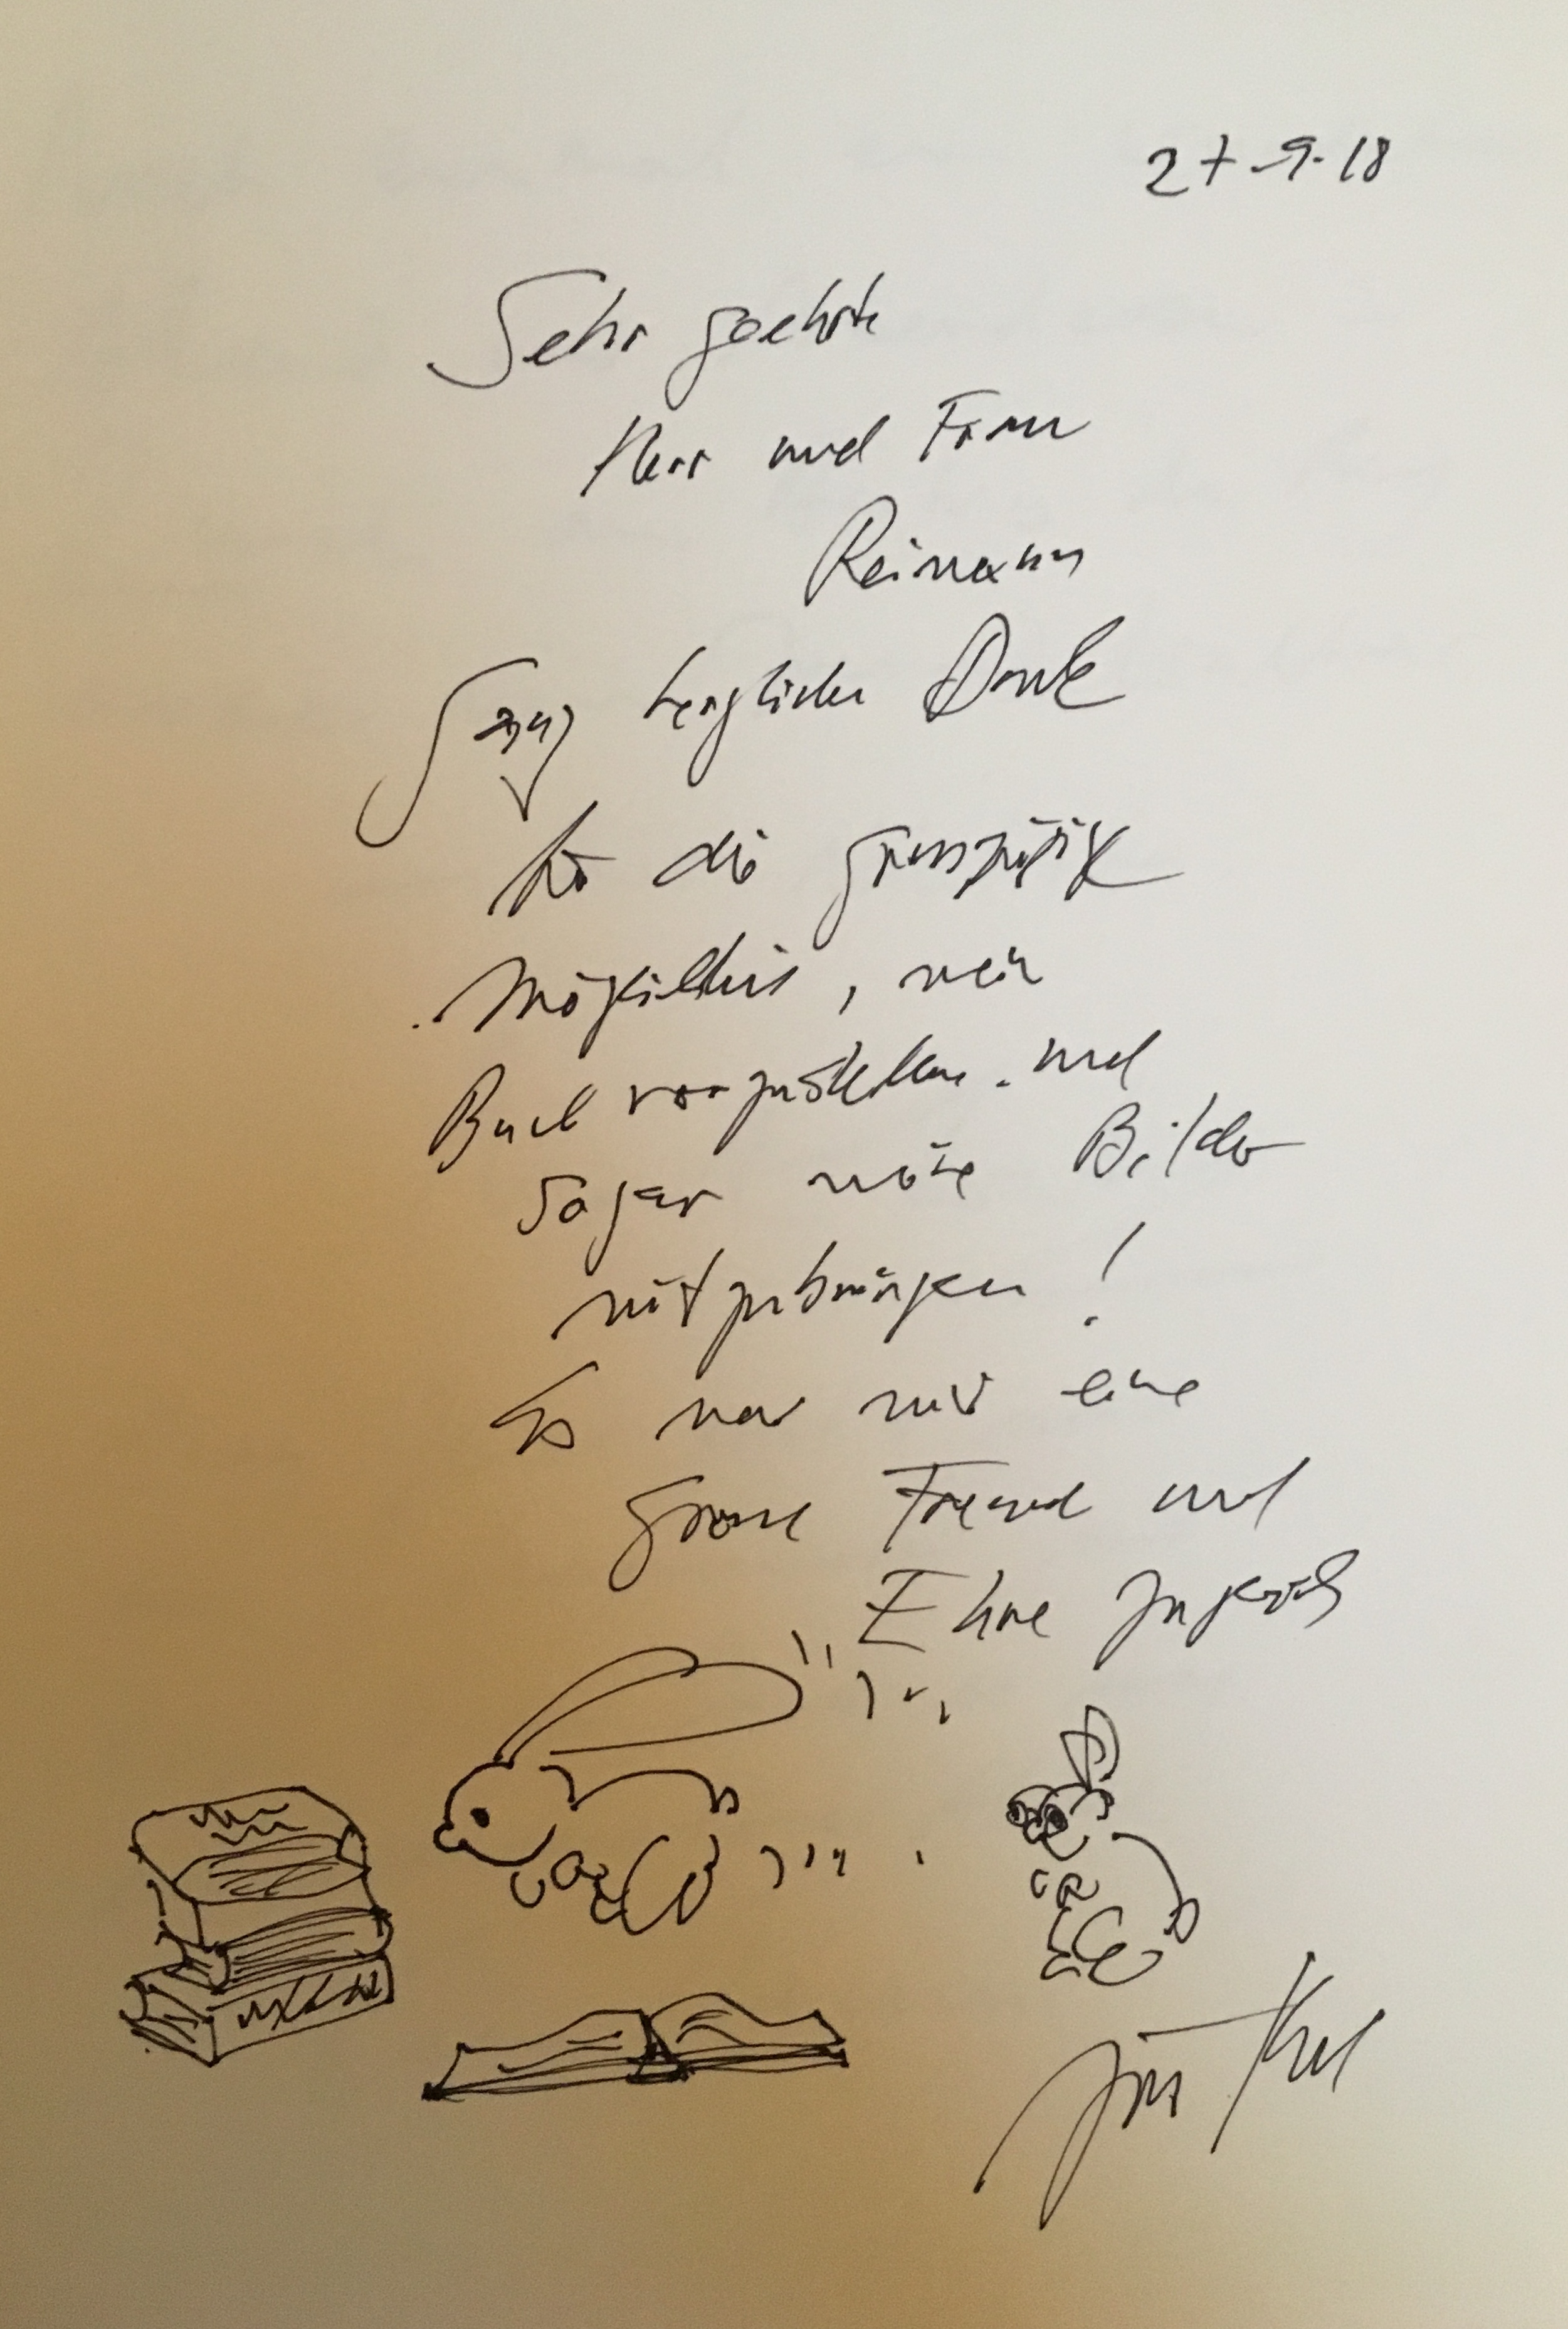 27.9.18
Sehr geehrte
Herr und Frau
Reimann
Ganz herzlichen Dank
für die grosszügige
Möglichkeit, mein
Buch vorzustellen und
sogar meine Bilder
mitzubringen!
Es war mir eine
grosse Freude und
Ehre zugleich